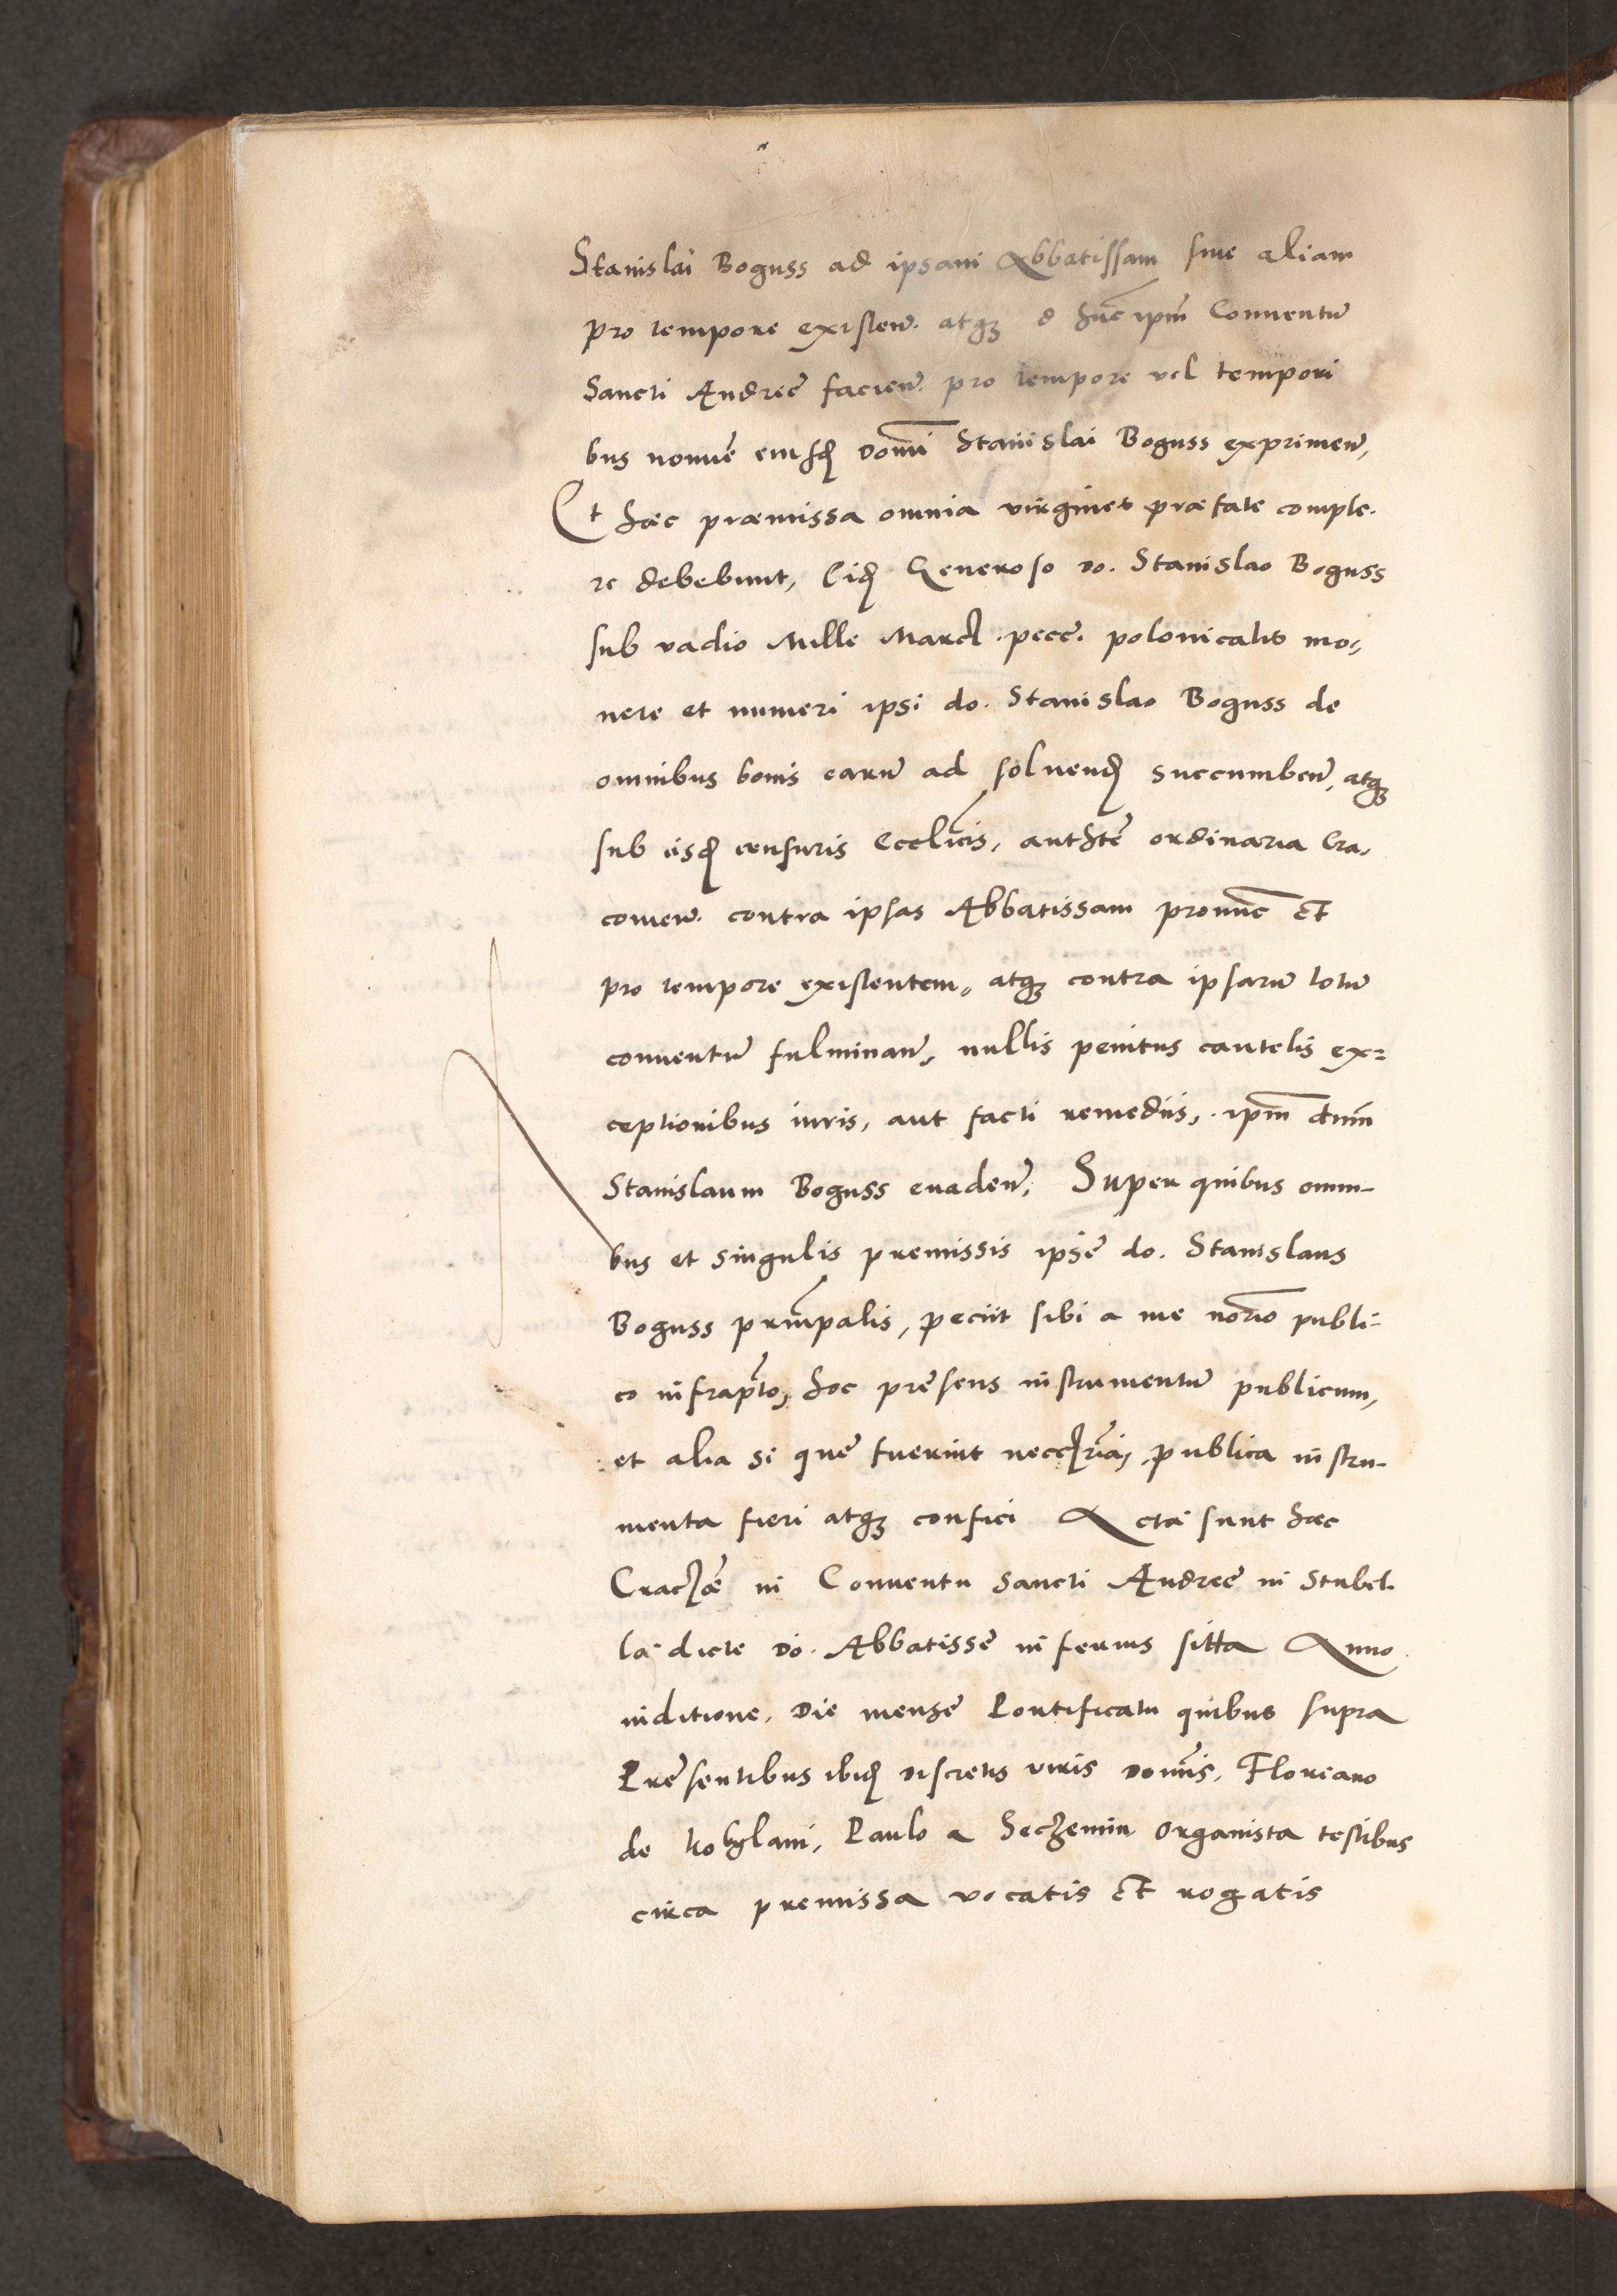 Stanislai Boguss ad ipsam Abbatissam siue aliam
pro tempore existeñ. atqȝ hũc ipm̃ Conuentũ
Sancti Andreę facieñ. pro tempore vel tempori
bus nomine eiusdꝫ Domi Stanislai Boguss exprimeñ,
Et hæc præmissa omnia virgines præfate comple-
re debebunt, Eidꝫ Generoso do. Stanislao Boguss
sub vadio Mille Marcꝭ. pecc. polonicalis mo-
nete et numeri ipsi do. Stanislao Boguss de
omnibus bonis earũ ad soluendꝫ succumbeñ, atqȝ
sub eisdꝫ censuris Eccl̃icis, authte ordinaria Cra-
couieñ. contra ipsas Abbatissam pronũc et
pro tempore existentem, atqȝ contra ipsarũ totũ
conuentũ fulminañ, nullis penitus cautelis ex-
ceptionibus iuris, aut facti remediis, ipm̃ dnm̃
Stanislaum Boguss euadeñ, Super quibus omni-
bus et singulis premissis ipse do. Stanislaus
Boguss prinĩpalis, peciit sibi a me norĩo publi-
co infrapt̃o, hoc pręsens instrumentũ publicum,
et alia si quę fuerint necc̃ria, publica instru-
menta fieri atqȝ confici Acta sunt hæc
Crac̃æ in Conuentu Sancti Andreę in Stubel-
la dicte do. Abbatissę inferius sitta Anno
inditione, Die mense Pontificatu quibus supra
Pręsentibus ibidꝫ discretis viris domĩs, Floreano
de Kobylani, Paulo a Seczemin Organista testibus
circa premissa vocatis et rogatis